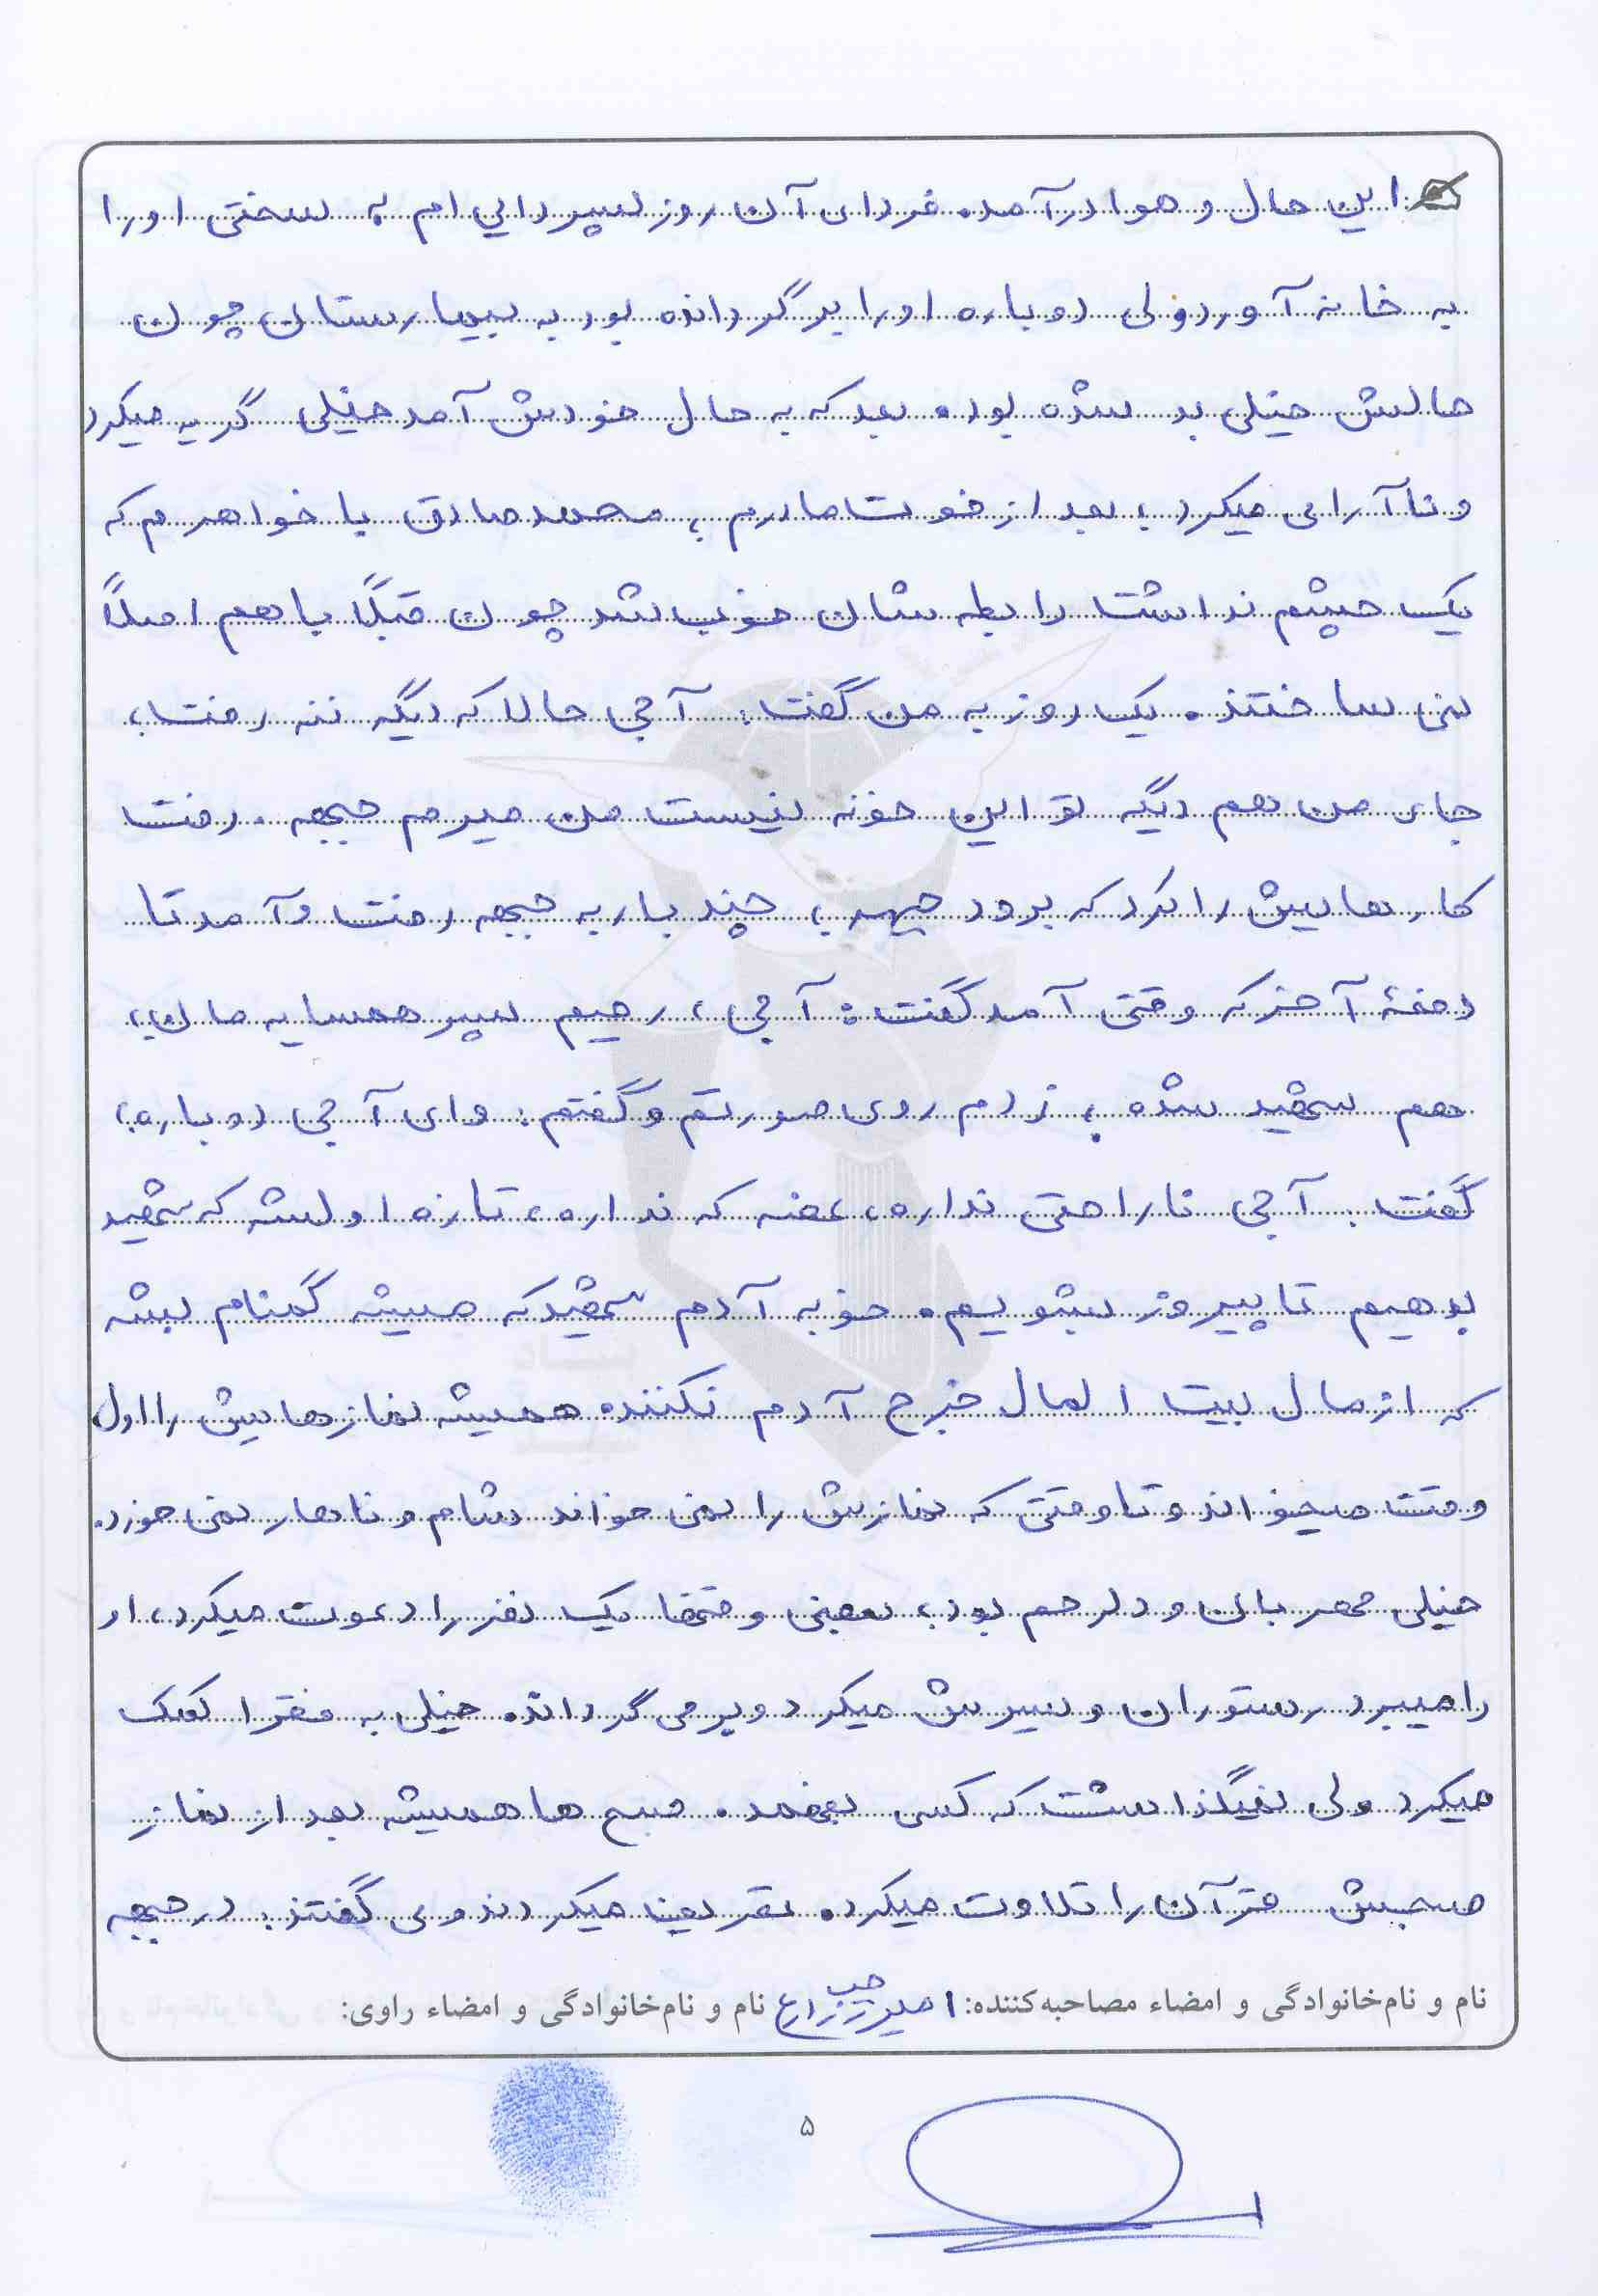 این حال و هوا درآمد. فردای آن روز پسر دایی ام به سختی او را
به خانه آورد ولی دوباره او را برگردانده بود به بیمارستان چون
حالش خیلی بد شده بود. بعد که به حال خودش آمد خیلی گریه میکرد
و نا آرامی میکرد، بعد از فوت مادرم، محمد صادق با خواهرم که
یک چشم نداشت رابطه شان خوب شد چون قبلاً با هم اصلاً
نمی ساختند. یک روز به من گفت: آجی حالا که دیگه ننه رفت،
جای من هم دیگه تو این خونه نیست من میرم جبهه. رفت
کارهایش را کرد که برود جبهه، چند بار به جبهه رفت و آمد تا
دفعهٔ آخر که وقتی آمد گفت: آجی، رحیم پسر همسایه مان،
هم شهید شده، زدم روی صورتم و گفتم: وای آجی دوباره،
گفت: آجی ناراحتی نداره، غصه که نداره، تازه اولشه که شهید
بدهیم تا پیروز بشویم. خوبه آدم شهید که میشه گمنام بشه
که از مال بیت المال خرج آدم نکنند. همیشه نمازهایش را اول
وقت میخواند و تا وقتی که نمازش را نمی خواند شام و ناهار نمی خورد.
خیلی مهربان و دلرحم بود، بعضی وقتها یک نفر را دعوت میکرد، او
را میبرد رستوران و سیرش میکرد و برمی گرداند. خیلی به فقرا کمک
میکرد ولی نمیگذاشت که کسی بفهمد. صبح ها همیشه بعد از نماز
صبحش قرآن را تلاوت میکرد. تعریف میکردند و می گفتند: در جبهه
نام و نام‌خانوادگی و امضاء مصاحبه‌کننده: نام و نام‌خانوادگی و امضاء راوی:
۵